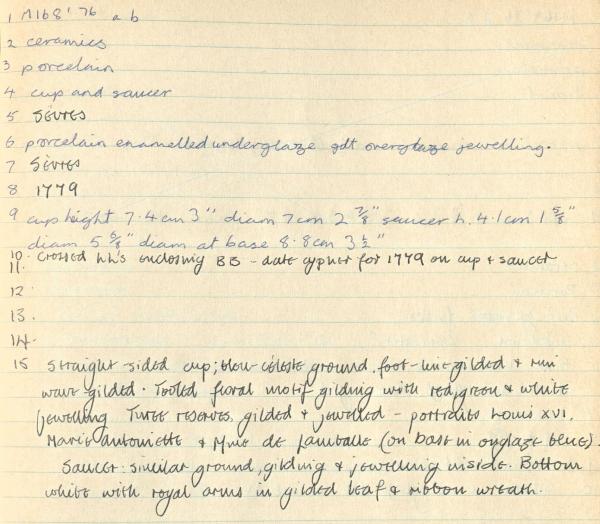 1 M168'76 a b
2 ceramics
3 porcelain
4 cup and saucer
5 Sèvres
6 porcelain enamelled underglaze gdt overglaze jewelling.
7 Sèvres
8 1779
9 cup hight 7.4cm 3" diam 7cm 2 7/8" saucer h. 4.1cm 1 5/8"
diam 5 5/8" diam at base 8.8cm 3 1/2"
10. Crossed LL's enclosing BB - date cypher for 1779 on cup & saucer
11.
12.
13.
14.
15 Straight-sided cup; bleu-céleste ground, foot-line gilded & rim
wave-gilded. Tooled floral motif gilding with red, green & white
jewelling Three reserves, gilded & jewelled - portraits Louis XVI,
Marie Antoinette & Mme de Lamballe (on base in onglaze blue).
Saucer: similar ground, gilding & jewelling inside. Bottom
white with royal arms in gilded leaf & ribbon wreath.